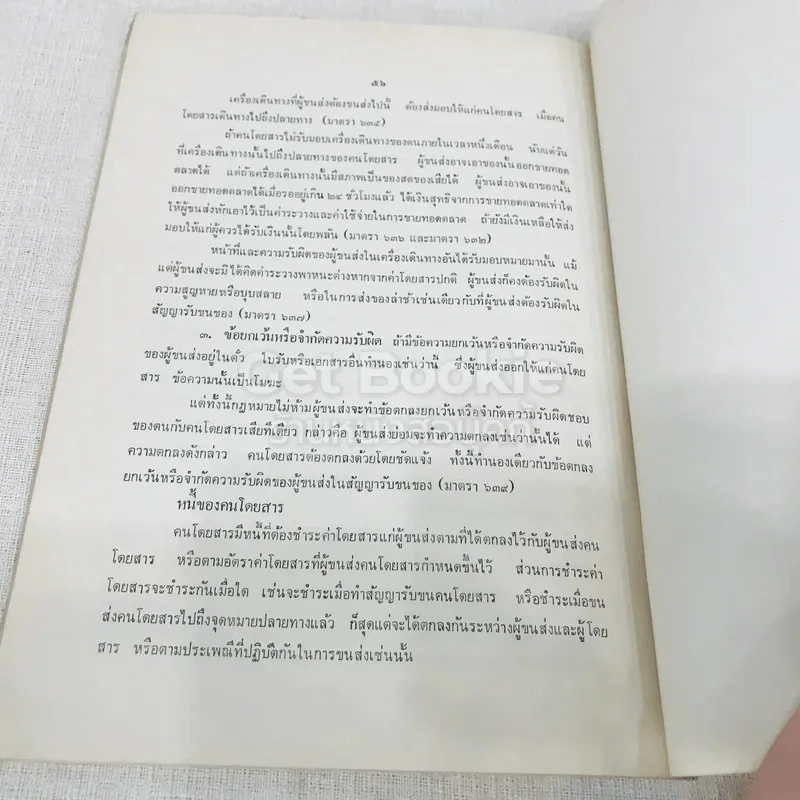 ๕๖
เครื่องเดินทางที่ผู้ขนส่งต้องขนส่งไปนี้ ต้องส่งมอบให้แก่คนโดยสาร เมื่อคน
โดยสารเดินทางไปถึงปลายทาง (มาตรา ๖๓๕)
ถ้าคนโดยสารไม่รับมอบเครื่องเดินทางของตนภายในเวลาหนึ่งเดือน นับแต่วัน
ที่เครื่องเดินทางนั้นไปถึงปลายทางของคนโดยสาร ผู้ขนส่งอาจเอาของนั้นออกขายทอด
ตลาดได้ แต่ถ้าเครื่องเดินทางนั้นมีสภาพเป็นของสดของเสียได้ ผู้ขนส่งอาจเอาของนั้น
ออกขายทอดตลาดได้เมื่อรออยู่เกิน ๒๔ ชั่วโมงแล้ว ได้เงินสุทธิจากการขายทอดตลาดเท่าใด
ให้ผู้ขนส่งหักเอาไว้เป็นค่าระวางและค่าใช้จ่ายในการขายทอดตลาด ถ้ายังมีเงินเหลือให้ส่ง
มอบให้แก่ผู้ควรได้รับเงินนั้นโดยพลัน (มาตรา ๖๓๖ และมาตรา ๖๓๒)
หน้าที่และความรับผิดของผู้ขนส่งในเครื่องเดินทางอันได้รับมอบหมายมานั้น แม้
แต่ผู้ขนส่งจะมิได้คิดค่าระวางพาหนะต่างหากจากค่าโดยสารปกติ ผู้ขนส่งก็คงต้องรับผิดใน
ความสูญหายหรือบุบสลาย หรือในการส่งของล่าช้าเช่นเดียวกับที่ผู้ขนส่งต้องรับผิดใน
สัญญารับขนของ (มาตรา ๖๓๗)
๓. ข้อยกเว้นหรือจำกัดความรับผิด ถ้ามีข้อความยกเว้นหรือจำกัดความรับผิด
ของผู้ขนส่งอยู่ในตั๋ว ใบรับหรือเอกสารอื่นทำนองเช่นว่านี้ ซึ่งผู้ขนส่งออกให้แก่คนโดย
สาร ข้อความนั้นเป็นโมฆะ
Get Bookie
แต่ทั้งนี้กฎหมายไม่ห้ามผู้ขนส่งจะทำข้อตกลงยกเว้นหรือจำกัดความรับผิดชอบ
ของตนกับคนโดยสารเสียทีเดียว กล่าวคือ ผู้ขนส่งย่อมจะทำความตกลงเช่นว่านั้นได้ แต่
ความตกลงดังกล่าว คนโดยสารต้องตกลงด้วยโดยชัดแจ้ง ทั้งนี้ทำนองเดียวกับข้อตกลง
ยกเว้นหรือจำกัดความรับผิดของผู้ขนส่งในสัญญารับขนของ (มาตรา ๖๓๙)
หนี้ของคนโดยสาร
คนโดยสารมีหนี้ที่ต้องชำระค่าโดยสารแก่ผู้ขนส่งตามที่ได้ตกลงไว้กับผู้ขนส่งคน
โดยสาร หรือตามอัตราค่าโดยสารที่ผู้ขนส่งคนโดยสารกำหนดขึ้นไว้ ส่วนการชำระค่า
โดยสารจะชำระกันเมื่อใด เช่นจะชำระเมื่อทำสัญญารับขนคนโดยสาร หรือชำระเมื่อขน
ส่งคนโดยสารไปถึงจุดหมายปลายทางแล้ว ก็สุดแต่จะได้ตกลงกันระหว่างผู้ขนส่งและผู้โดย
สาร หรือตามประเพณีที่ปฏิบัติกันในการขนส่งเช่นนั้น